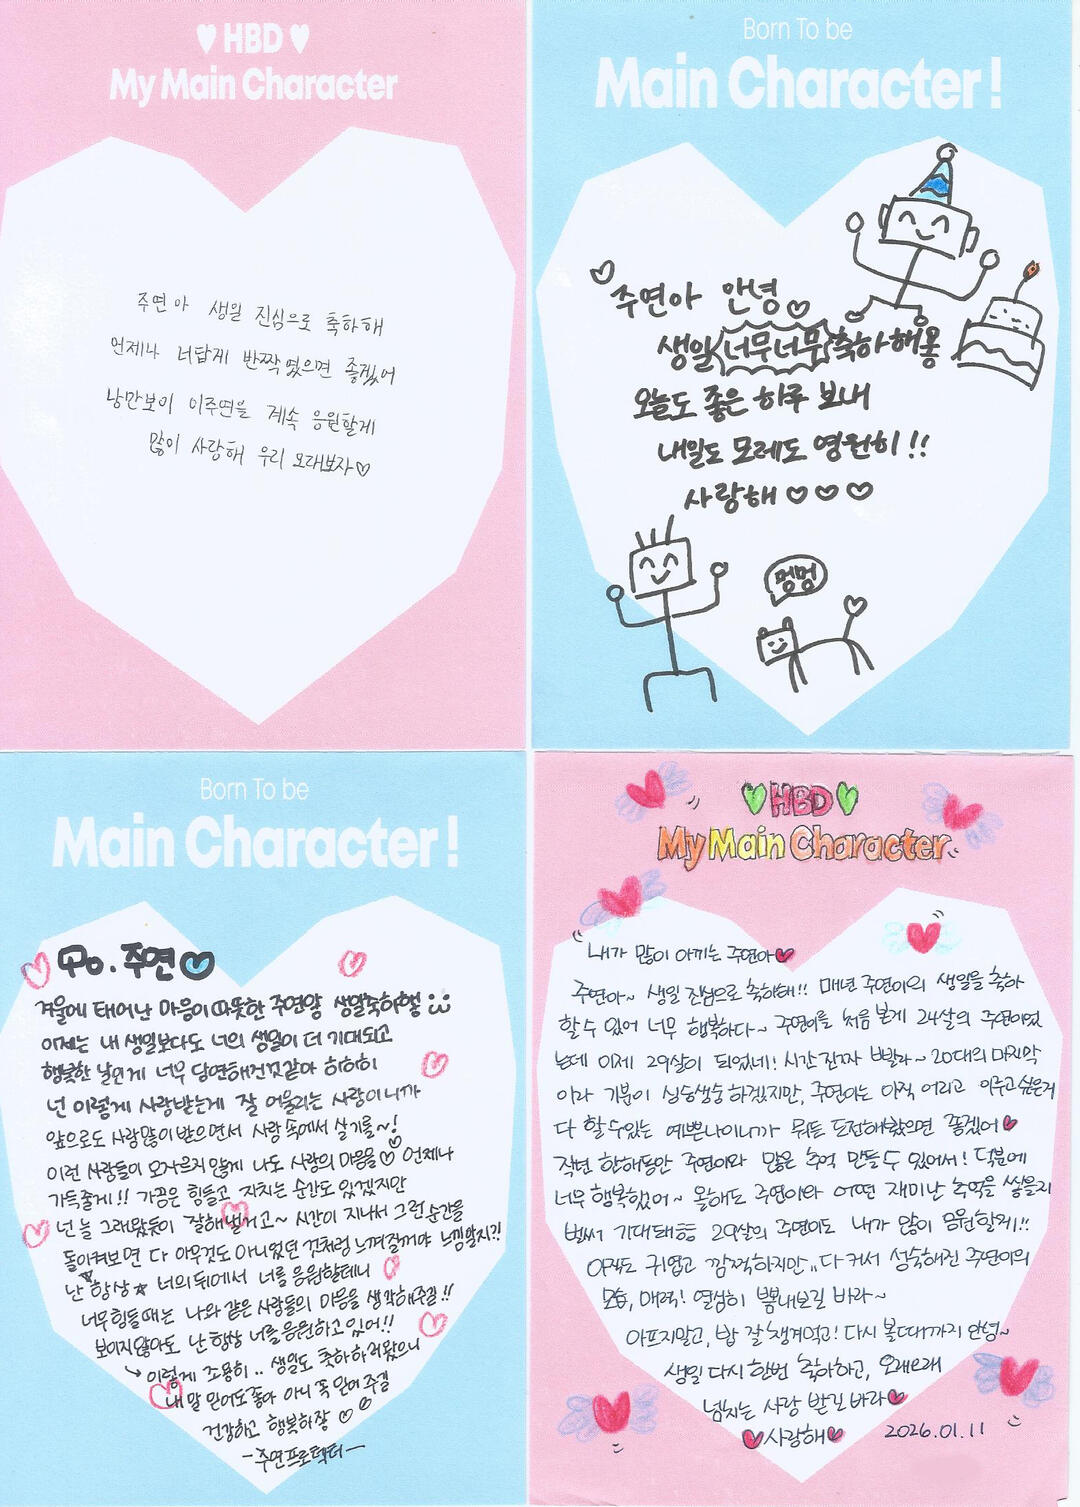 ♥ HBD ♥
My Main Character
주연아 생일 진심으로 축하해
언제나 너답게 반짝였으면 좋겠어
낭만보이 이주연을 계속 응원할게
많이 사랑해 우리 오래보자♡
Born To be
Main Character!
주연아 안녕
생일 너무너무 축하해용
오늘도 좋은 하루 보내
내일도 모레도 영원히!!
사랑해 ♡♡♡
멍멍
Born To be
Main Character!
To. 주연♡
겨울에 태어난 마음이 따뜻한 주연아 생일축하행
이제는 내 생일보다도 너의 생일이 더 기대되고
행복한 날인게 너무 당연해진것같아 히히히
넌 이렇게 사랑받는게 잘 어울리는 사람이니까
앞으로도 사랑많이 받으면서 사랑 속에서 살기를~!
이런 사람들이 모자르지 않게 나도 사랑의 마음을♡ 언제나
가득줄게!! 가끔은 힘들고 지치는 순간도 있겠지만
넌 늘 그래왔듯이 잘해낼거고~ 시간이 지나서 그런순간을
돌이켜보면 다 아무것도 아니었던 것처럼 느껴질꺼야 느낌알지?!
난 항상☆ 너의 뒤에서 너를 응원할테니
너무 힘들때는 나와 같은 사람들의 마음을 생각해주길!!
보이지않아도 난 항상 너를 응원하고 있어!!
→ 이렇게 조용히.. 생일도 축하하러왔으니
내 말 믿어도 좋아 아니 꼭 믿어 주길
건강하고 행복하장 ♡♡
-주연프로텍터-
♥HBD♥
My Main Character
"내가 많이 아끼는 주연아♥
주연아~ 생일 진심으로 축하해!! 매년 주연이의 생일을 축하
할 수 있어 너무 행복하다~ 주연이를 처음 본게 24살의 주연이였
는데 이제 29살이 되었네! 시간 진짜 빨라~ 20대의 마지막
이라 기분이 싱숭생숭 하겠지만, 주연이는 아직 어리고 이루고 싶은거
다 할 수 있는 예쁜나이니까 뭐든 도전해봤으면 좋겠어♥
작년 한해동안 주연이와 많은 추억 만들 수 있어서! 덕분에
너무 행복했어~ 올해도 주연이와 어떤 재미난 추억을 쌓을지
벌써 기대돼ㅎㅎ 29살의 주연이도 내가 많이 응원할게!!
아직도 귀엽고 깜찍하지만,, 다 커서 성숙해진 주연이의
모습, 매력! 열심히 뽐내보길 바라~
아프지말고, 밥 잘 챙겨먹고! 다시 볼때까지 안녕~
생일 다시 한번 축하하고, 오래오래
넘치는 사랑 받길 바라♥
♥사랑해♥ 2026.01.11